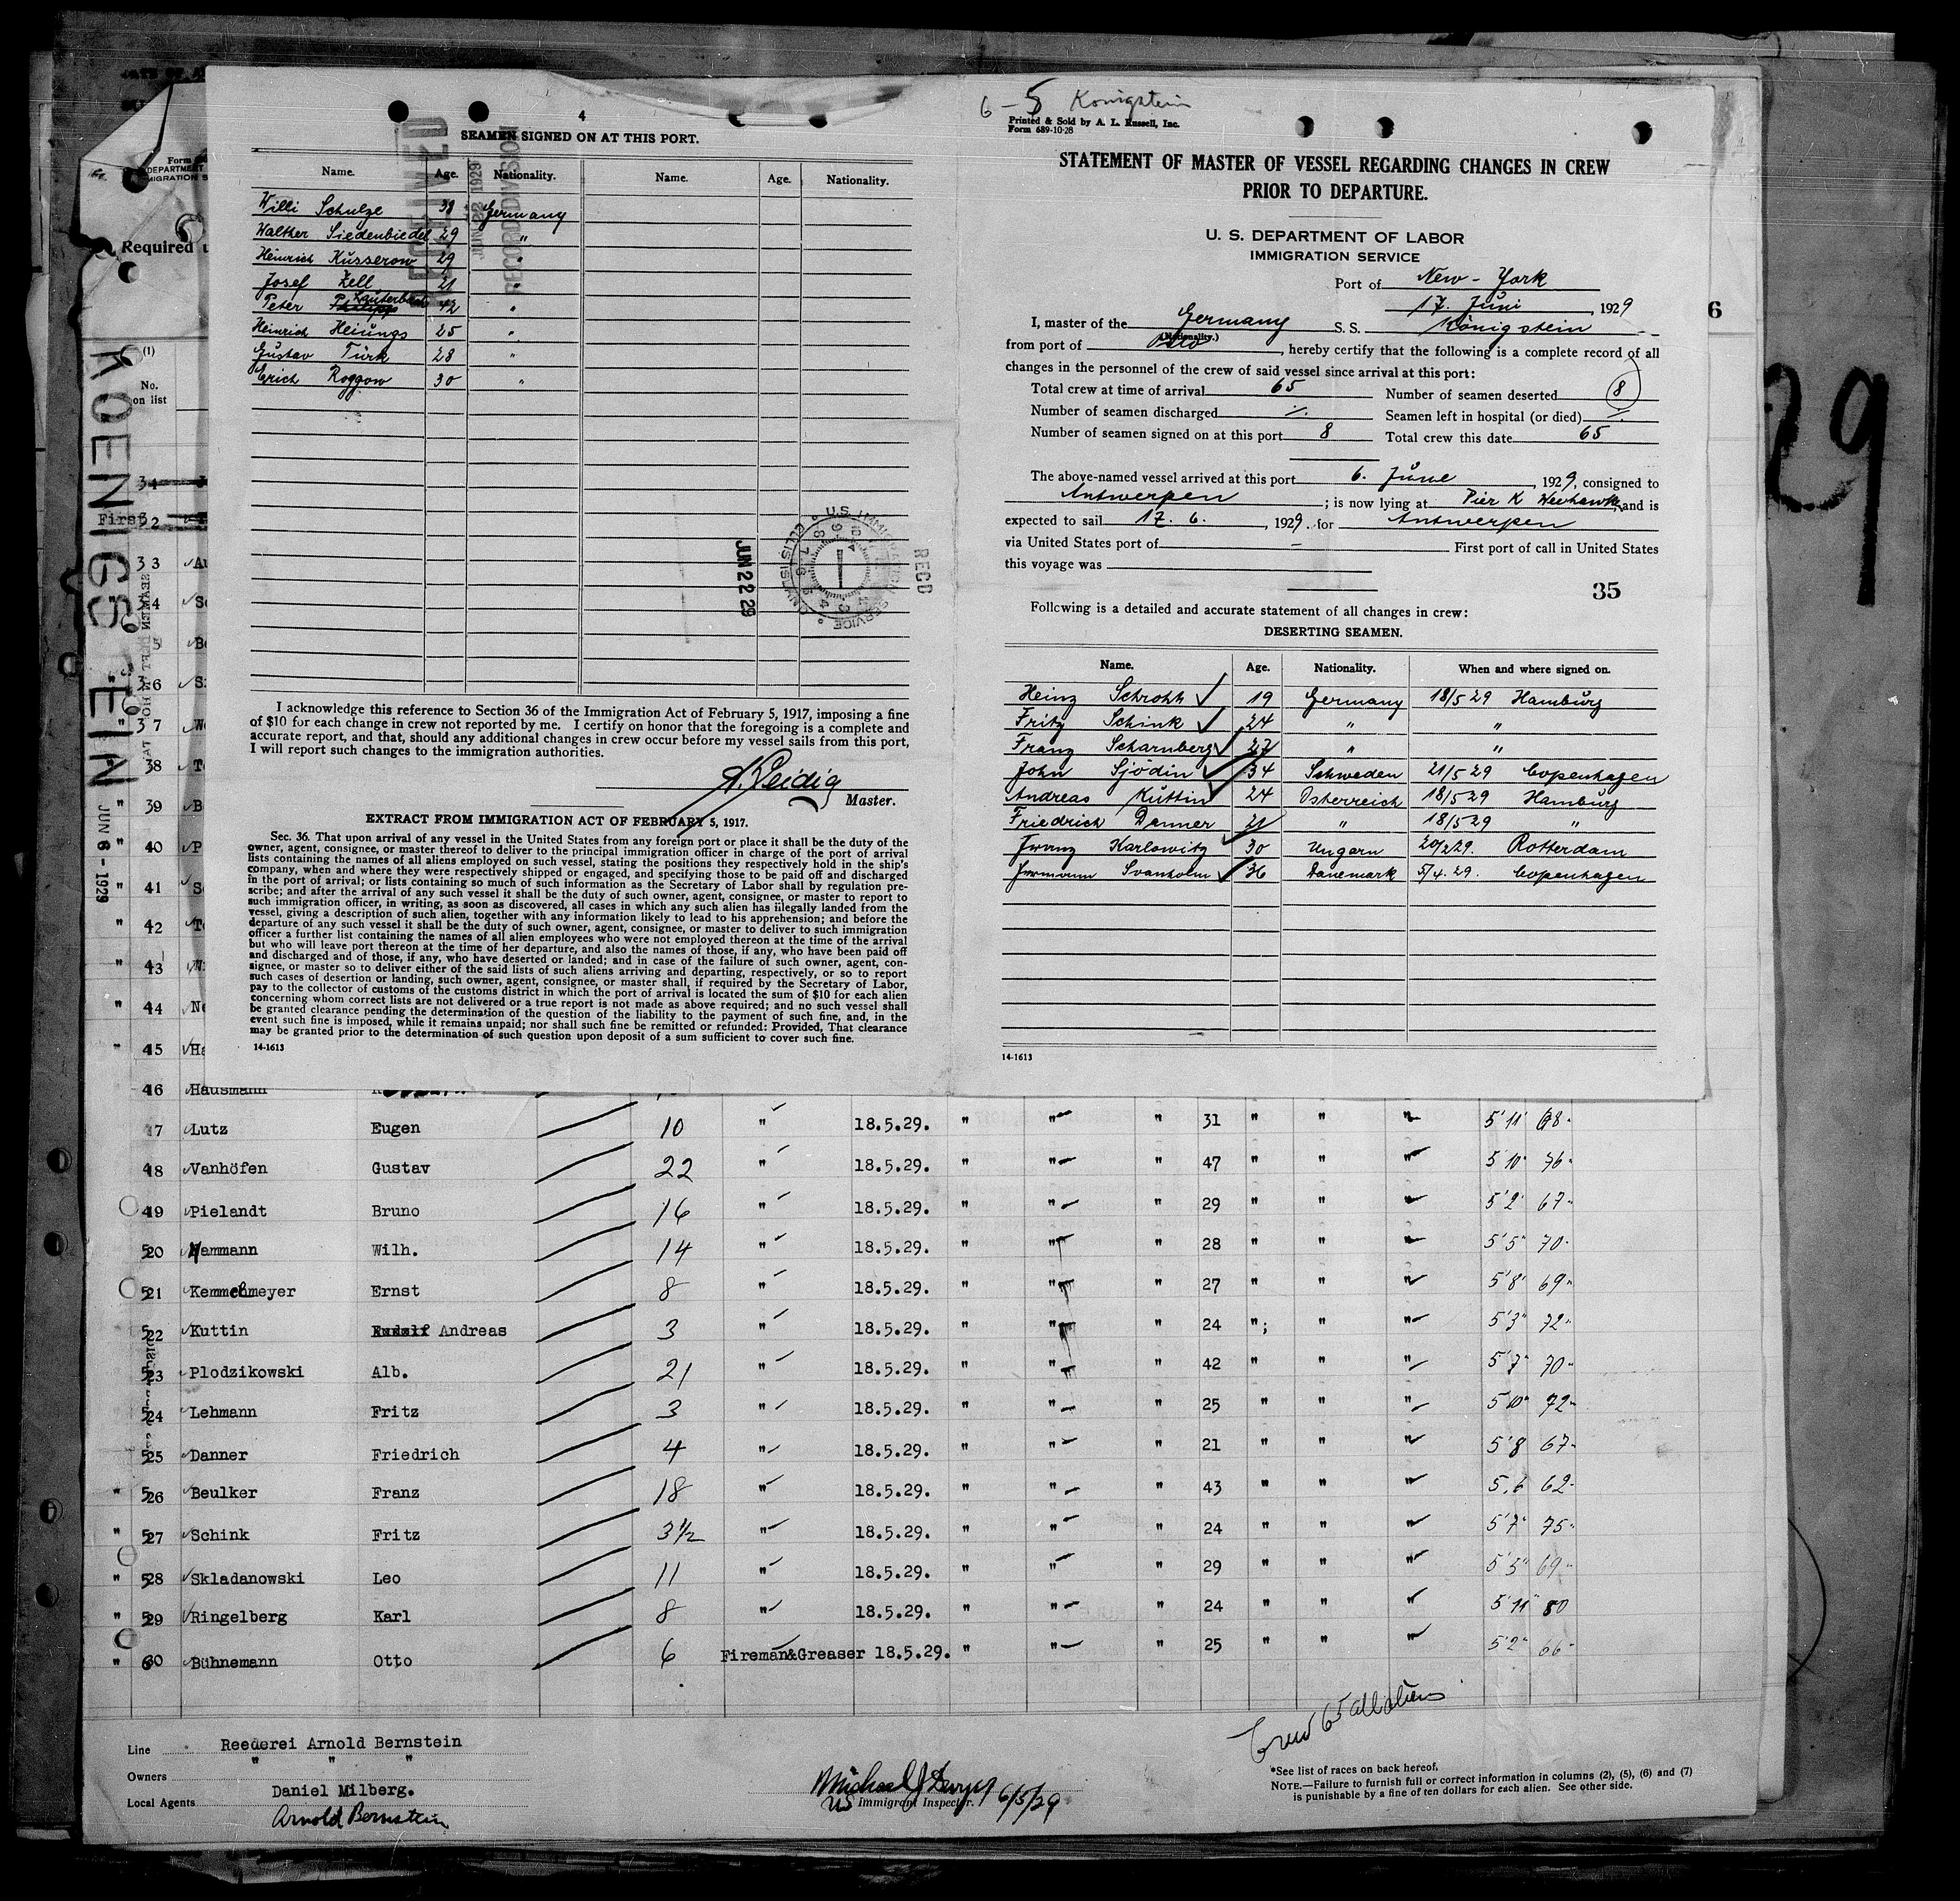 4
SEAMEN SIGNED ON AT THIS PORT.
Name. Age. Nationality. Name. Age. Nationality.
Willi Schulze 38 Germany
Walther Siedenbiedel 29 "
Heinrich Kusserow 29 "
Josef Zell 21 "
Peter Lauterbach 42 "
Heinrich Heiungs 25 "
Gustav Türk 28 "
Erich Roggow 30 "
RECEIVED
JUN 22 1929
RECORD DIVISION
JUN 22 29
U.S. IMMIGRATION SERVICE
ELLIS ISLAND
RECD
I acknowledge this reference to Section 36 of the Immigration Act of February 5, 1917, imposing a fine
of $10 for each change in crew not reported by me. I certify on honor that the foregoing is a complete and
accurate report, and that, should any additional changes in crew occur before my vessel sails from this port,
I will report such changes to the immigration authorities.
Master.
EXTRACT FROM IMMIGRATION ACT OF FEBRUARY 5, 1917.
Sec. 36. That upon arrival of any vessel in the United States from any foreign port or place it shall be the duty of the
owner, agent, consignee, or master thereof to deliver to the principal immigration officer in charge of the port of arrival
lists containing the names of all aliens employed on such vessel, stating the positions they respectively hold in the ship's
company, when and where they were respectively shipped or engaged, and specifying those to be paid off and discharged
in the port of arrival; or lists containing so much of such information as the Secretary of Labor shall by regulation pre-
scribe; and after the arrival of any such vessel it shall be the duty of such owner, agent, consignee, or master to report to
such immigration officer, in writing, as soon as discovered, all cases in which any such alien has illegally landed from the
vessel, giving a description of such alien, together with any information likely to lead to his apprehension; and before the
departure of any such vessel it shall be the duty of such owner, agent, consignee, or master to deliver to such immigration
officer a further list containing the names of all alien employees who were not employed thereon at the time of the arrival
but who will leave port thereon at the time of her departure, and also the names of those, if any, who have been paid off
and discharged and of those, if any, who have deserted or landed; and in case of the failure of such owner, agent, con-
signee, or master so to deliver either of the said lists of such aliens arriving and departing, respectively, or so to report
such cases of desertion or landing, such owner, agent, consignee, or master shall, if required by the Secretary of Labor,
pay to the collector of customs of the customs district in which the port of arrival is located the sum of $10 for each alien
concerning whom correct lists are not delivered or a true report is not made as above required; and no such vessel shall
be granted clearance pending the determination of the question of the liability to the payment of such fine, and, in the
event such fine is imposed, while it remains unpaid; nor shall such fine be remitted or refunded: Provided, That clearance
may be granted prior to the determination of such question upon deposit of a sum sufficient to cover such fine.
14-1613
6 - 5 Konigstein
Printed & Sold by A. L. Russell, Inc.
Form 689-10-28
STATEMENT OF MASTER OF VESSEL REGARDING CHANGES IN CREW
PRIOR TO DEPARTURE.
U. S. DEPARTMENT OF LABOR
IMMIGRATION SERVICE
Port of New-York
17. Juni, 1929
6
I, master of the Germany S. S. Königstein
(Nationality.)
from port of Oslo, hereby certify that the following is a complete record of all
changes in the personnel of the crew of said vessel since arrival at this port:
Total crew at time of arrival 65 Number of seamen deserted 8
Number of seamen discharged ./. Seamen left in hospital (or died) ./.
Number of seamen signed on at this port 8 Total crew this date 65
The above-named vessel arrived at this port 6. June, 1929, consigned to
Antwerpen; is now lying at Pier K Weehawk, and is
expected to sail 17. 6., 1929. for Antwerpen
via United States port of - First port of call in United States
this voyage was
35
Following is a detailed and accurate statement of all changes in crew:
DESERTING SEAMEN.
Name. Age. Nationality. When and where signed on.
Heinz Schrohk 19 Germany 18/5 29 Hamburg
Fritz Schink 24 " "
Franz Scharnberg 27 " "
John Sjödin 34 Schweden 21/5 29 Copenhagen
Andreas Kuttin 24 Österreich 18/5 29 Hamburg
Friedrich Danner 21 " 18/5 29 "
Franz Karlowitz 30 Ungarn 20/2 29. Rotterdam
Hermann Svanholm 36 Danemark 5/4. 29. Copenhagen
14-1613
29
Form
DEPARTMENT
IMMIGRATION S
Required u
(1)
No.
on list
KOENIGSTEIN
JUN 6 - 1929
34
First 32
33 Au
34 Sc
5 Be
36 Si
" 37 We
38 Te
" 39 B
" 40 P
" 41 Se
" 42 Te
" 43
" 44 Ne
" 45 Ha
46 Hausmann
47 Lutz Eugen 10 " 18.5.29. " " " 31 " " " 5'11" 68
48 Vanhöfen Gustav 22 " 18.5.29. " " " 47 " " " 5'10" 76
49 Pielandt Bruno 16 " 18.5.29. " " " 29 " " " 5'2" 67
520 Hammann Wilh. 14 " 18.5.29. " " " 28 " " " 5'5" 70
521 Kemmehmeyer Ernst 8 " 18.5.29. " " " 27 " " " 5'8" 69
522 Kuttin Rudolf Andreas 3 " 18.5.29. " " " 24 "; " " 5'3" 72
523 Plodzikowski Alb. 21 " 18.5.29. " " " 42 " " " 5'7" 70
524 Lehmann Fritz 3 " 18.5.29. " " " 25 " " " 5'10" 72
525 Danner Friedrich 4 " 18.5.29. " " " 21 " " " 5'8 67
" 526 Beulker Franz 18 " 18.5.29. " " " 43 " " " 5.6 62
" 527 Schink Fritz 3½ " 18.5.29. " " " 24 " " " 5'7" 75
" 528 Skladanowski Leo 11 " 18.5.29. " " " 29 " " " 5'5" 69
" 529 Ringelberg Karl 8 " 18.5.29. " " " 24 " " " 5'11" 80
" 60 Bühnemann Otto 6 Fireman&Greaser 18.5.29. " " " 25 " " " 5'2" 66
Crew 65 all aliens
Line Reederei Arnold Bernstein
Owners " " "
Local Agents Daniel Milberg.
Arnold Bernstein
US Immigrant Inspector. 6/5/29
*See list of races on back hereof.
NOTE.—Failure to furnish full or correct information in columns (2), (5), (6) and (7)
is punishable by a fine of ten dollars for each alien. See other side.